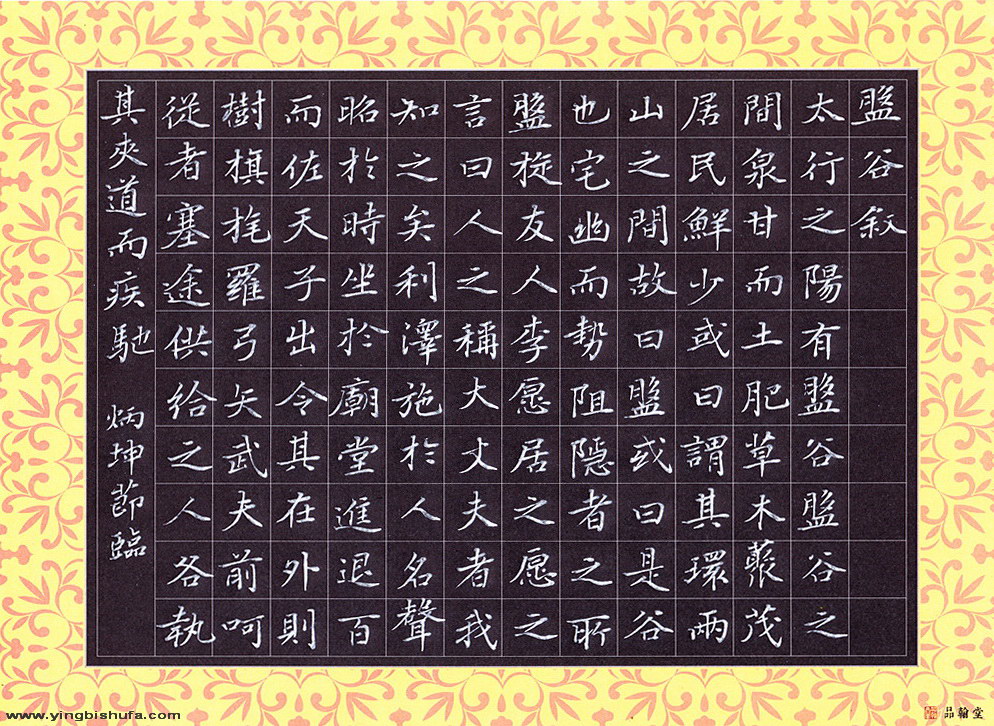 盤谷敘
太行之陽有盤谷盤谷之
間泉甘而土肥草木藂茂
居民鮮少或曰謂其環兩
山之間故曰盤或曰是谷
也宅幽而勢阻隱者之所
盤旋友人李愿居之愿之
言曰人之稱大丈夫者我
知之矣利澤施於人名聲
昭於時坐於廟堂進退百
而佐天子出令其在外則
樹旗旄羅弓矢武夫前呵
從者塞途供給之人各執
其夾道而疾馳 炳坤節臨
www.yingbishufa.com
品翰堂